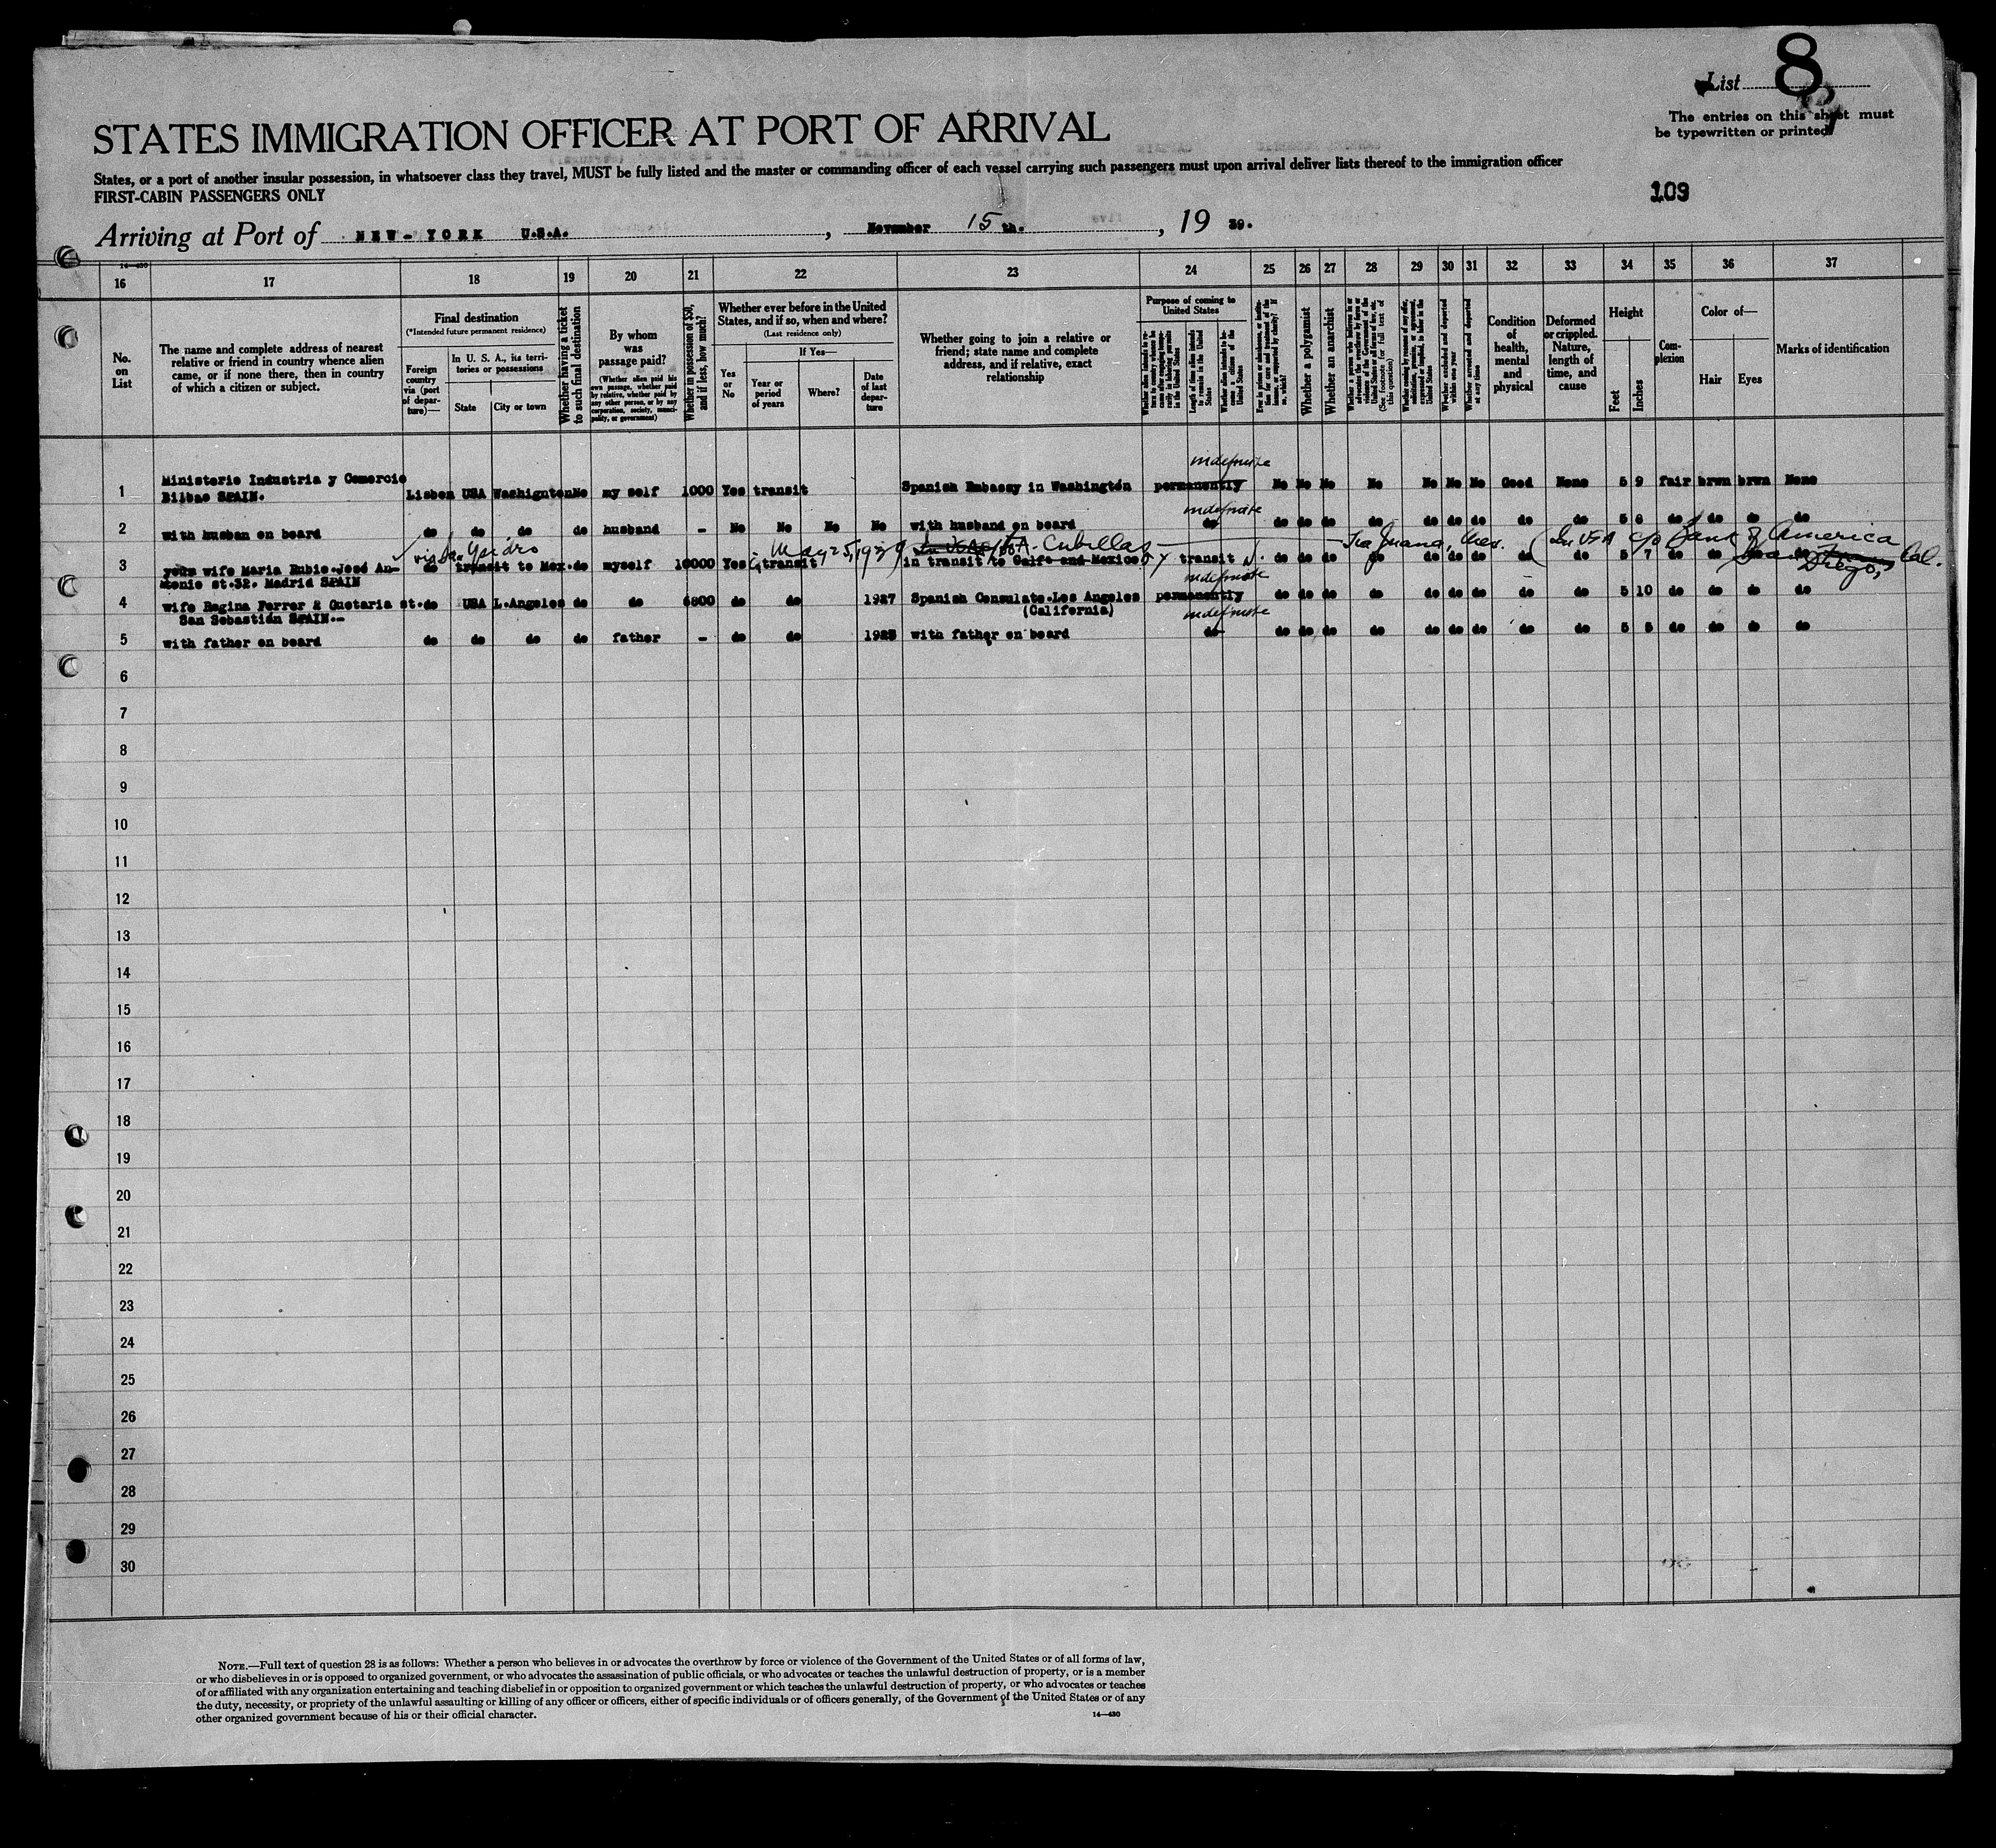 List 8
The entries on this sheet must
be typewritten or printed
STATES IMMIGRATION OFFICER AT PORT OF ARRIVAL
States, or a port of another insular possession, in whatsoever class they travel, MUST be fully listed and the master or commanding officer of each vessel carrying such passengers must upon arrival deliver lists thereof to the immigration officer
FIRST-CABIN PASSENGERS ONLY
109
Arriving at Port of NEW-YORK U.S.A. , November 15 th. , 19 39.
14—430
16 17 18 19 20 21 22 23 24 25 26 27 28 29 30 31 32 33 34 35 36 37
No.
on
List
The name and complete address of nearest
relative or friend in country whence alien
came, or if none there, then in country
of which a citizen or subject.
Final destination
(*Intended future permanent residence)
Foreign
country
via (port
of depar-
ture)—
In U. S. A., its terri-
tories or possessions
State
City or town
Whether having a ticket
to such final destination
By whom
was
passage paid?
(Whether alien paid his
own passage, whether paid
by relative, whether paid by
any other person, or by any
corporation, society, munici-
pality, or government)
Whether in possession of $50,
and if less, how much?
Whether ever before in the United
States, and if so, when and where?
(Last residence only)
Yes
or
No
If Yes—
Year or
period
of years
Where?
Date
of last
depar-
ture
Whether going to join a relative or
friend; state name and complete
address, and if relative, exact
relationship
Purpose of coming to
United States
Length of time alien intends
to remain in the United
States
Whether alien intends to be-
come a citizen of the
United States
Whether a polygamist
Whether an anarchist
(See footnote for full text of
this question)
Whether arrested and deported
at any time
Condition
of
health,
mental
and
physical
Deformed
or crippled.
Nature,
length of
time, and
cause
Height
Feet
Inches
Com-
plexion
Color of—
Hair
Eyes
Marks of identification
indefinite
1 Ministerio Industria y Comercio
Bilbao SPAIN. Lisbon USA Washignton No my self 1000 Yes transit Spanish Embassy in Washington permanently No No No No No No No Good None 5 9 fair brwn brwn None
indefinite
2 with husban on board do do do do husband - No No No No with husband on board do do do do do do do do do do 5 6 do do do do
via San Ysidro May 25, 1939 In USA A. Cubillas Tia Juana, Mex. (In USA c/o Bank of America
3 yours wife Maria Rubio.José An-
tonio st.32. Madrid SPAIN do transit to Mex. do myself 10000 Yes transit in transit to Calfe and Mexico transit do do do do do do do do do 5 7 do do do do
San Diego, Cal.
indefinite
4 wife Regina Ferrer 2 Guetaria st.
San Sebastián SPAIN.- do USA L.Angeles do do 6800 do do 1927 Spanish Consulate.Los Angeles
(California) permanently do do do do do do do do do 5 10 do do do do
indefinite
5 with father on board do do do do father - do do 1925 with father on board do do do do do do do do do do 5 5 do do do do
6
7
8
9
10
11
12
13
14
15
16
17
18
19
20
21
22
23
24
25
26
27
28
29
30
NOTE.—Full text of question 28 is as follows: Whether a person who believes in or advocates the overthrow by force or violence of the Government of the United States or of all forms of law,
or who disbelieves in or is opposed to organized government, or who advocates the assassination of public officials, or who advocates or teaches the unlawful destruction of property, or is a member
of or affiliated with any organization entertaining and teaching disbelief in or opposition to organized government or which teaches the unlawful destruction of property, or who advocates or teaches
the duty, necessity, or propriety of the unlawful assaulting or killing of any officer or officers, either of specific individuals or of officers generally, of the Government of the United States or of any
other organized government because of his or their official character.
14—430